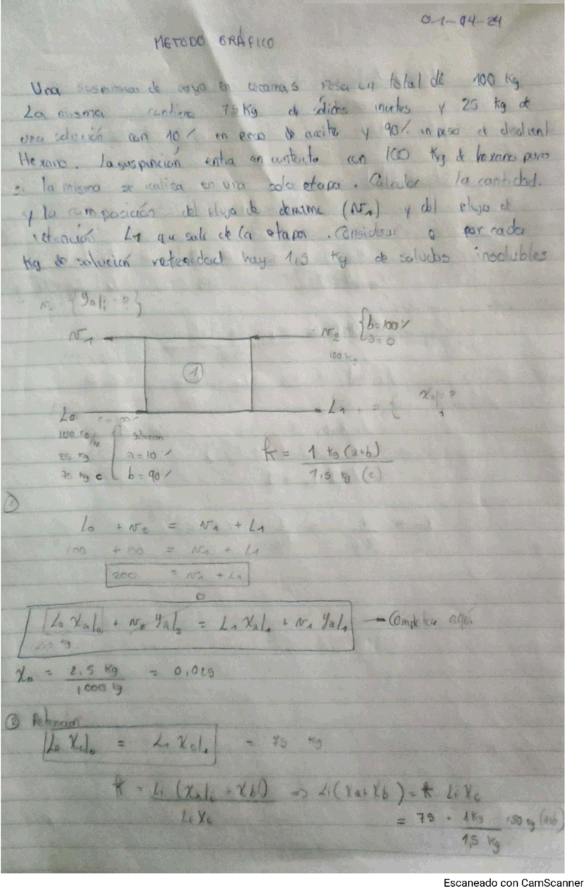 01-04-24
METODO GRÁFICO
Una suspension de soya en escamas posa un total de 100 Kg
La misma contiene 75 Kg de sólidos inertes y 25 Kg de
una solución con 10% en peso de aceite y 90% en peso de
Hexano. La suspención entra en contacto con 100 Kg de hexano puro
la misma se realiza en una sola etapa. Calcular la cantidad.
y la composición del flujo de derrame (N1) y del flujo de
retención L1 que sale de la etapa. Considerar q por cada
Kg de solución hay 1,5 Kg de solidos insolubles
N1 ← N2 {b=100%
a=0
100 Kg
①
L0 → L1 = {
100 Kg
25 Kg a=10%
75 Kg c b=90%
k = 1 Kg (a+b) / 1,5 Kg (c)
①
L0 + N2 = N1 + L1
100 + 100 = N1 + L1
200 = N1 + L1
0
L0 Xa|0 + N2 Ya|2 = L1 Xa|1 + N1 Ya|1 → aquí
X0 = 2,5 Kg / 100 Kg = 0,025
② Retencion
L0 Xc|0 = L1 Xc|1 = 75 Kg
k = L1 (Xa|1 + Xb|) / L1 Xc ⇒ L1(Xa+Xb) = k L1 Xc
= 75 · 1Kg / 1,5 Kg = 50 Kg (a+b)
Escaneado con CamScanner